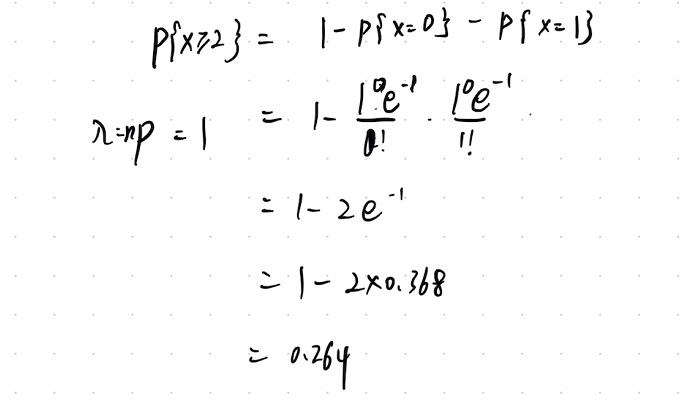 P{x≥2} = 1 - P{x=0} - P{x=1}
λ=np = 1 = 1 - 1⁰e⁻¹/0! · 1⁰e⁻¹/1!
= 1 - 2e⁻¹
= 1 - 2×0.368
= 0.264